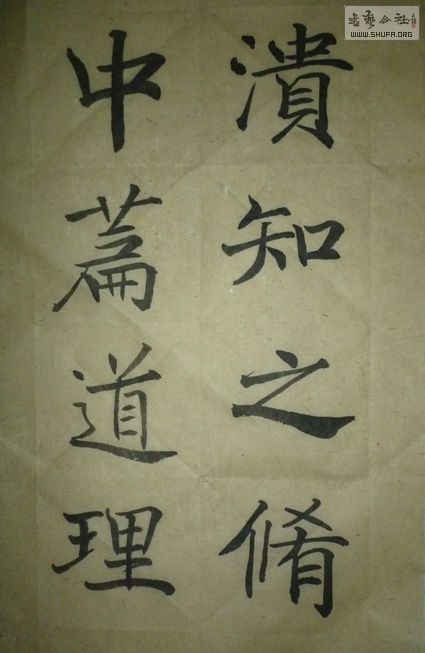 潰知之倄
中萹道理
書藝公社
WWW.SHUFA.ORG